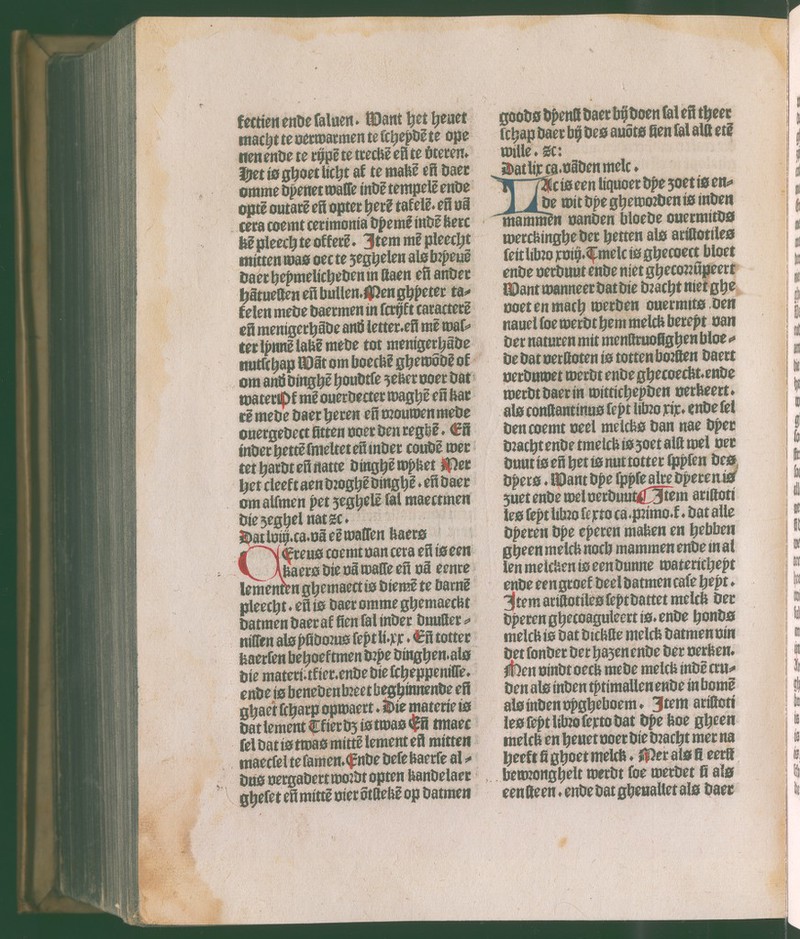 fectien ende saluen. Want het heuet
macht te verwarmen te schepdē te ope
nen ende te rijpē te treckē eñ te vteren.
Het is ghoet licht af te makē eñ daer
omme dyenet wasse indē tempelē ende
optē outarē eñ opter herē tafelē. eñ vā
cera coemt cerimonia dyemē indē kerc
kē pleech te offerē. Item mē pleecht
mitten was oec te zeghelen als brpeuē
daer heymelicheden in staen eñ ander
hātuesten eñ bullen. Men ghpeter ta⸗
felen mede daermen in scrijft caracterē
eñ menigerhāde and letter. eñ mē was⸗
ter lynnē lakē mede tot menigerhāde
nutschap Wāt om boeckē ghewōdē of
om and dinghē houdtse zeker voer dat
water Of mē ouerdecter waghē eñ kar
rē mede daer heren eñ vrouwen mede
ouergedect sitten voer den reghē. Eñ
inder hettē smeltet eñ inder coudē wer
tet hardt eñ natte dinghē wyket Mer
het cleeft aen droghē dinghē. eñ daer
om alsmen yet zeghelē sal maectmen
die zeghel nat ꝛc.
Dat lviij. ca. vā eē wassen kaers
CEreus coemt van cera eñ is een
kaers die vā wasse eñ vā eenre
lementen ghemaect is diemē te barnē
pleecht. eñ is daer omme ghemaeckt
datmen daer af sien sal inder duuster⸗
nissen als ysidorus seyt li. xx. Eñ totter
kaersen behoeftmen drye dinghen. als
die materi. tfier. ende die scheppenisse.
ende is beneden breet beghinnende eñ
ghaet scharp opwaert. Die materie is
dat lement Tfier dꝫ is twas Eñ tmaec
sel dat is twas mittē lement eñ mitten
maecsel te samen. Ende dese kaerse al⸗
dus vergadert wordt opten kandelaer
gheset eñ mittē vier ōtstekē op datmen
goods dyenst daer bij doen sal eñ theer
schap daer bij des auōts sien sal alst etē
wille. ꝛc:
Dat lix ca. vāden melc.
LAc is een liquoer dye zoet is en⸗
de wit dye gheworden is inden
mammen vanden bloede ouermitds
werckinghe der hetten als aristotiles
seit libro xviij. Tmelc is ghecoect bloet
ende verduut ende niet ghecorrūpeert
Want wanneer dat die dracht niet ghe
voet en mach werden ouermits den
nauel soe werdt hem melck bereyt van
der naturen mit menstruosighen bloe⸗
de dat verstoten is totten borsten daert
verduwet werdt ende ghecoeckt. ende
werdt daer in witticheyden verkeert.
als constantinus seyt libro xix. ende sel
den coemt veel melcks dan nae dyer
dracht ende tmelck is zoet alst wel ver
duut is eñ het is nut totter spysen des
dyers. Want dye spyse alre dyeren is
zuet ende wel verduut Item aristoti
les seyt libro sexto ca. primo. f. dat alle
dyeren dye eyeren maken en hebben
gheen melck noch mammen ende in al
len melcken is een dunne watericheyt
ende een groef deel datmen case heyt.
Item aristotiles seyt dattet melck der
dyeren ghecoaguleert is. ende honds
melck is dat dickste melck datmen vin
det sonder der hazen ende der verken.
Men vindt oeck mede melck indē cru⸗
den als inden tytimallen ende in bomē
als inden vygheboem. Item aristoti
les seyt libro sexto dat dye koe gheen
melck en heuet voer die dracht mer na
heeft si ghoet melck. Mer als si eerst
bewronghelt werdt soe werdet si als
een steen. ende dat gheuallet als daer